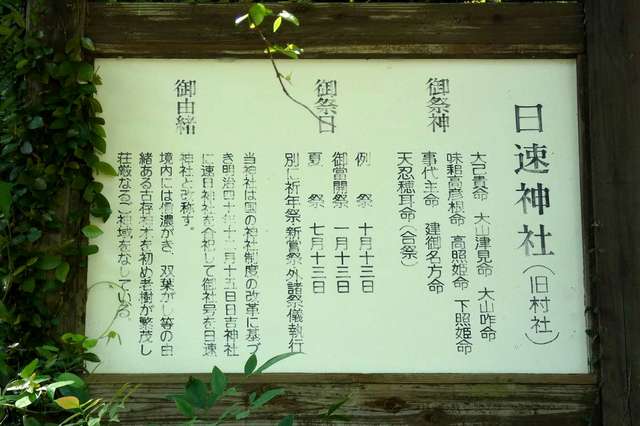 日速神社（旧村社）
御祭神
大己貴命　大山津見命　大山咋命
味耜高彦根命　高照姫命　下照姫命
事代主命　建御名方命
天忍穂耳命（合祭）
御祭日
例　祭　十月十三日
御當開祭　一月十三日
夏　祭　七月十三日
別に祈年祭　新嘗祭　外諸祭儀執行
御由緒
当神社は国の神社制度の改革に基づ
き明治四十年十二月十五日日吉神社
に速日神社を合祀して御社号を日速
神社と改称す。
境内には信濃がき、双葉がし等の由
緒ある古存神木を初め老樹が繁茂し
荘厳なるご神域をなしている。